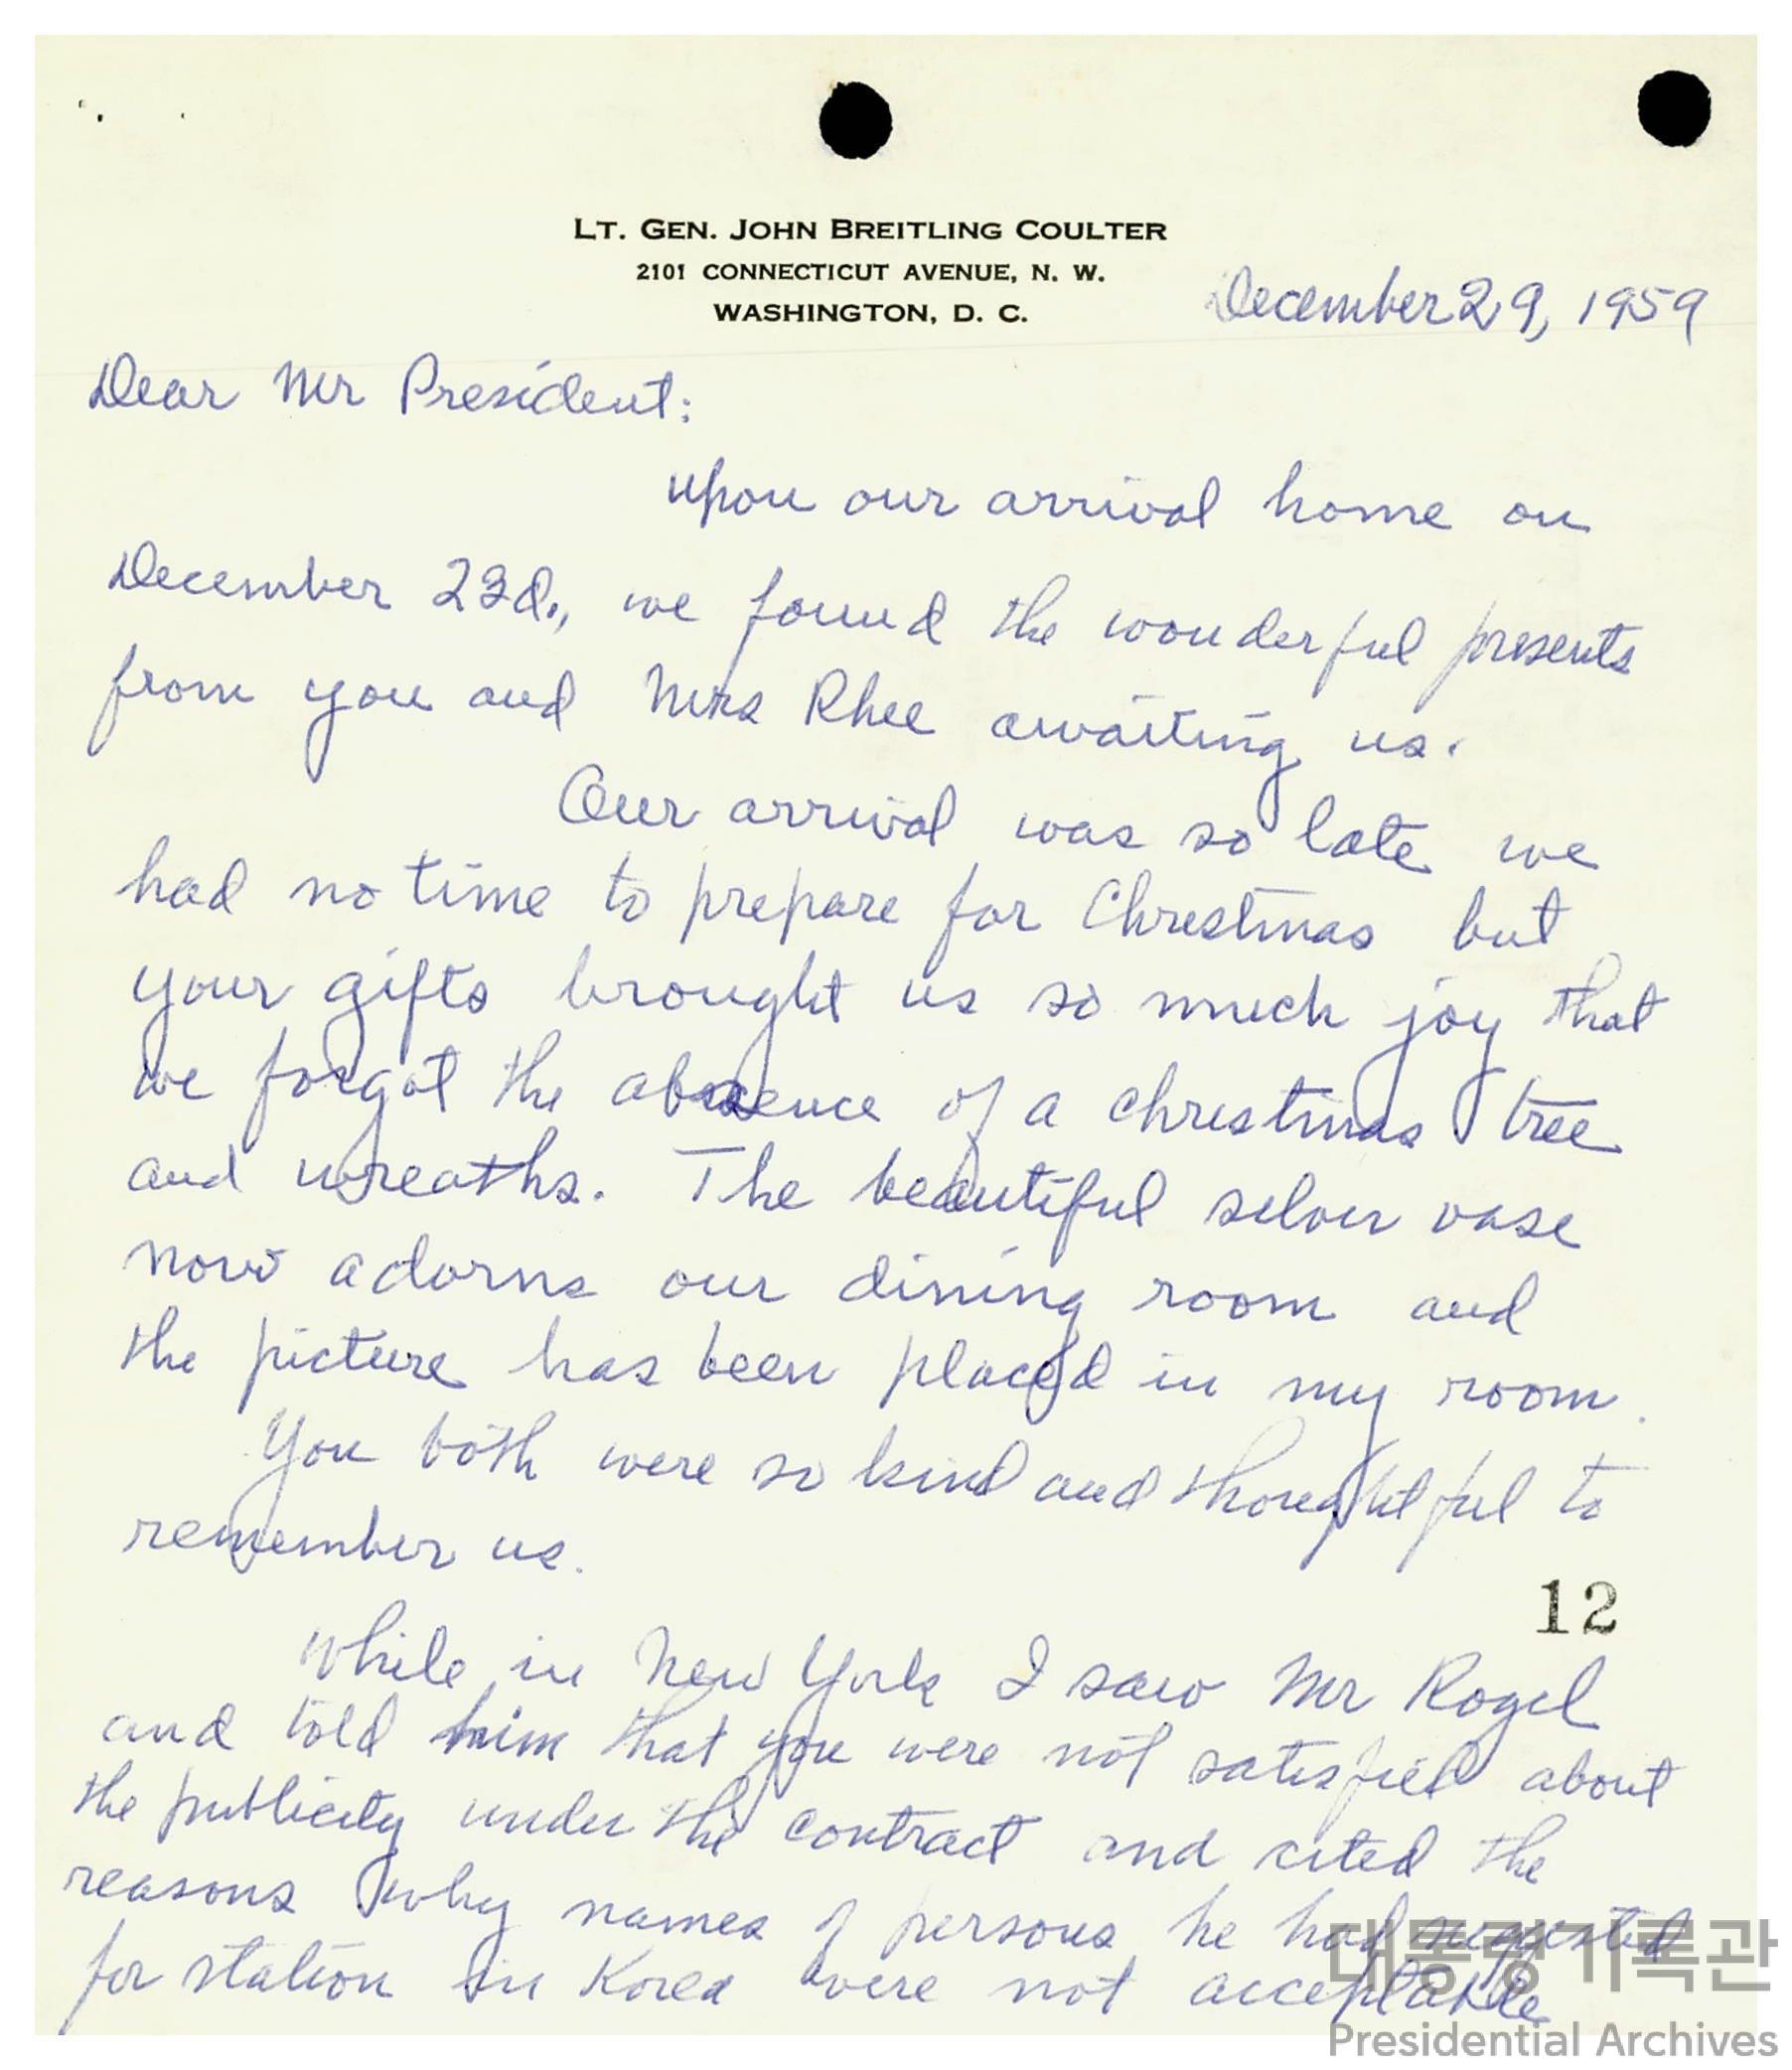 LT. GEN. JOHN BREITLING COULTER
2101 CONNECTICUT AVENUE, N. W.
WASHINGTON, D. C.
December 29, 1959
Dear Mr President:
Upon our arrival home on
December 23d., we found the wonderful presents
from you and Mrs Rhee awaiting us.
Our arrival was so late we
had no time to prepare for Christmas but
your gifts brought us so much joy that
we forgot the absence of a Christmas tree
and wreaths. The beautiful silver vase
now adorns our dining room and
the picture has been placed in my room.
You both were so kind and thoughtful to
remember us.
12
While in New York I saw Mr Rogel
and told him that you were not satisfied about
the publicity under the contract and cited the
reasons why names of persons he had suggested
for station in Korea were not acceptable
대통령기록관
Presidential Archives